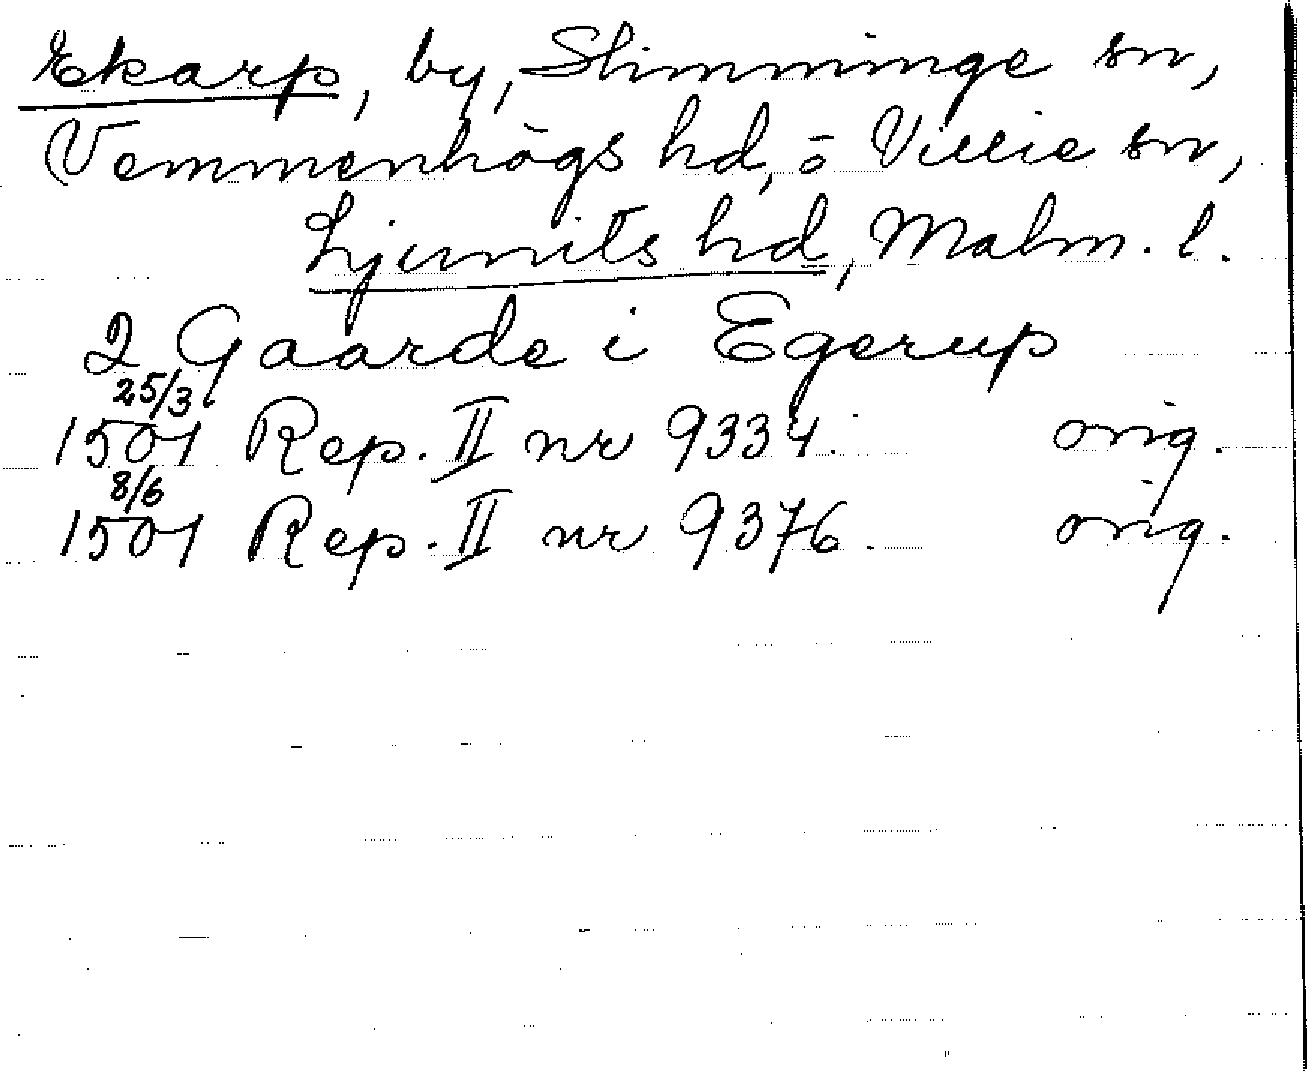 Ekarp, by, Slimminge sn,
Vemmenhögs hd, ō Villie sn,
Ljunits hd, Malm. l.
2 Gaarde i Egerup
25/3
1501 Rep. II nr 9334. orig.
8/6
1501 Rep. II nr 9376. orig.